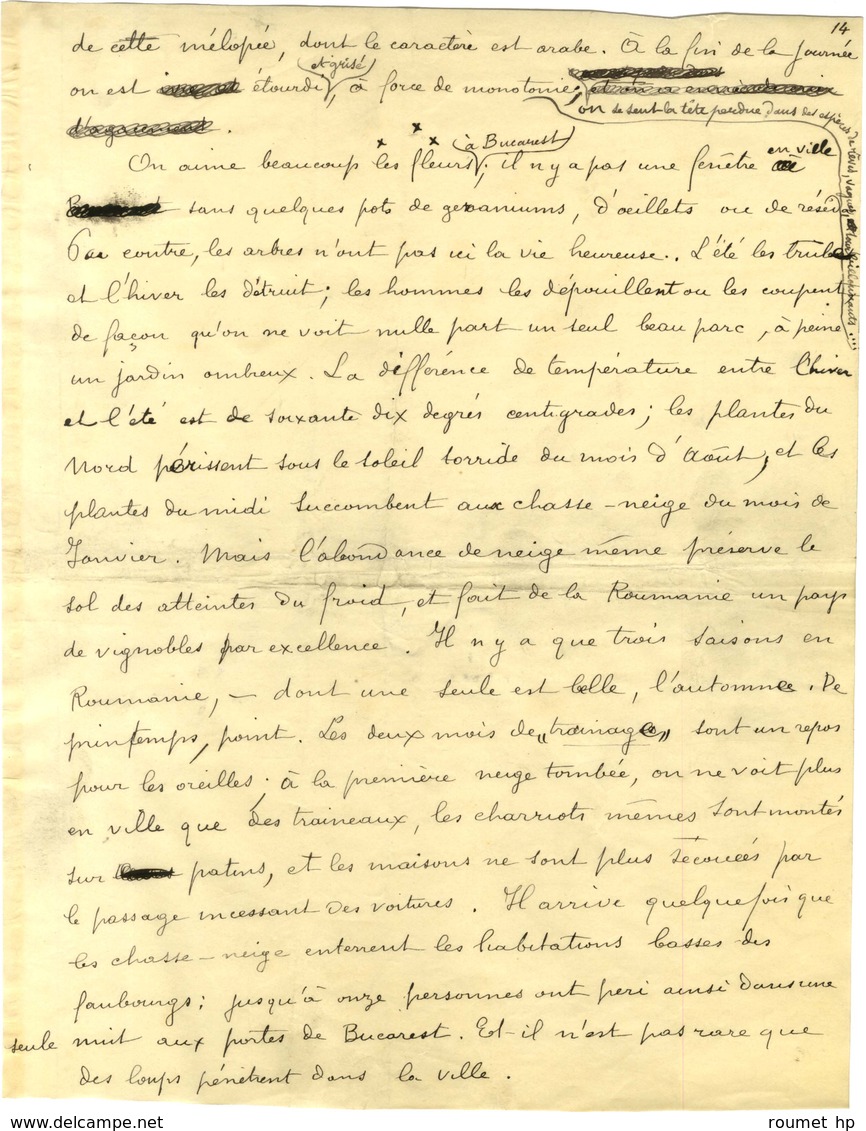 14
de cette mélopée, dont le caractère est arabe. À la fin de la journée
on est étourdi, et grisé, à force de monotonie;
on se sent la tête perdue dans des espèces de rêves, vagues,
On aime beaucoup les fleurs, à Bucarest; il n'y a pas une fenêtre en ville
sans quelques pots de géraniums, d'oeillets ou de réséda
Par contre, les arbres n'ont pas ici la vie heureuse.. L'été les brûle
et l'hiver les détruit; les hommes les dépouillent ou les coupent
de façon qu'on ne voit nulle part un seul beau parc, à peine
un jardin ombreux. La différence de température entre l'hiver
et l'été est de soixante dix degrés centigrades; les plantes du
Nord périssent sous le soleil torride du mois d'Août, et les
plantes du midi succombent aux chasse-neige du mois de
Janvier. Mais l'abondance de neige même préserve le
sol des atteintes du froid, et fait de la Roumanie un pays
de vignobles par excellence. Il n'y a que trois saisons en
Roumanie, — dont une seule est belle, l'automne. De
printemps, point. Les deux mois de „trainage„ sont un repos
pour les oreilles; à la première neige tombée, on ne voit plus
en ville que des traineaux, les charriots mêmes sont montés
sur patins, et les maisons ne sont plus secouées par
le passage incessant des voitures. Il arrive quelquefois que
les chasse-neige enterrent les habitations basses des
faubourgs; jusqu'à onze personnes ont peri ainsi dans une
seule nuit aux portes de Bucarest. Et il n'est pas rare que
des loups pénètrent dans la ville.
www.delcampe.net
roumet hp